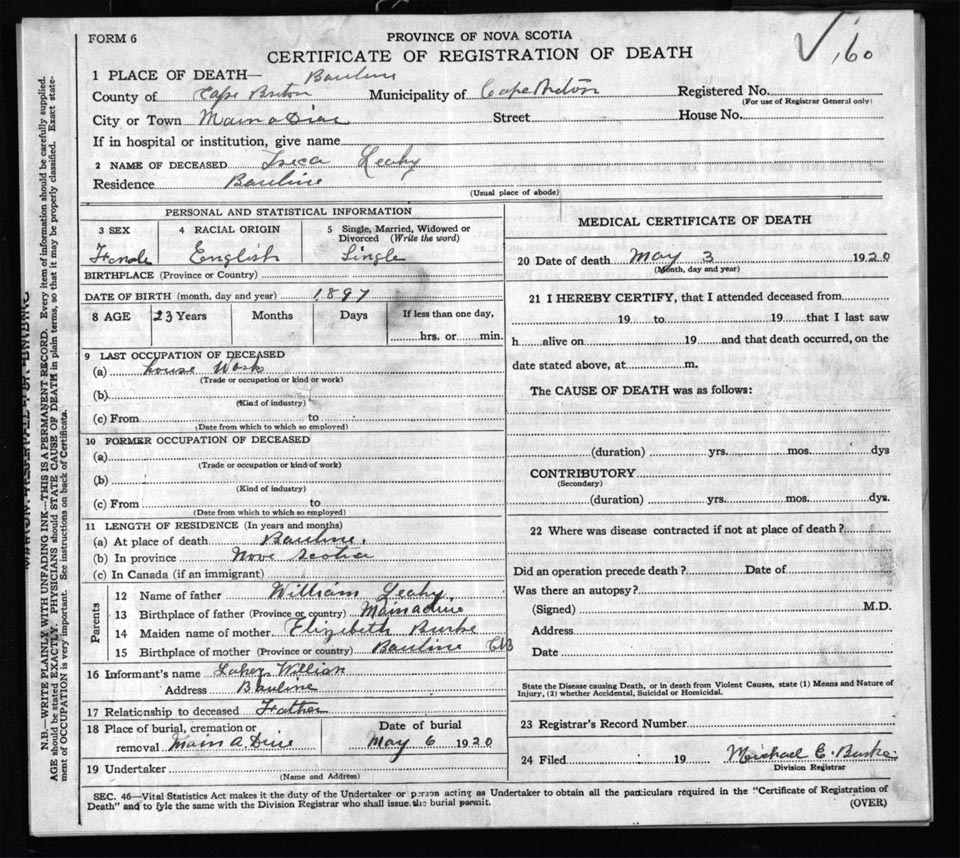 FORM 6
PROVINCE OF NOVA SCOTIA
CERTIFICATE OF REGISTRATION OF DEATH
160
1 PLACE OF DEATH— Bauline
County of Cape Breton Municipality of Cape Breton Registered No.
(For use of Registrar General only)
City or Town Main a Dieu Street House No.
If in hospital or institution, give name
2 NAME OF DECEASED Leahy
Residence Bauline
(Usual place of abode)
PERSONAL AND STATISTICAL INFORMATION
3 SEX 4 RACIAL ORIGIN 5 Single, Married, Widowed or
Divorced (Write the word)
Female English Single
BIRTHPLACE (Province or Country)
DATE OF BIRTH (month, day and year) 1897
8 AGE 23 Years Months Days If less than one day,
hrs. or min.
9 LAST OCCUPATION OF DECEASED
(a) House Work
(Trade or occupation or kind or work)
(b)
(Kind of industry)
(c) From to
(Date from which to which so employed)
10 FORMER OCCUPATION OF DECEASED
(a)
(Trade or occupation or kind of work)
(b)
(Kind of industry)
(c) From to
(Date from which to which so employed)
11 LENGTH OF RESIDENCE (In years and months)
(a) At place of death Bauline.
(b) In province Nove Scotia
(c) In Canada (if an immigrant)
Parents
12 Name of father William Leahy
13 Birthplace of father (Province or country) Mainadieu
14 Maiden name of mother Elizibeth Burke
15 Birthplace of mother (Province or country) Bauline CB
16 Informant's name Lahey William
Address Bauline
17 Relationship to deceased Father
18 Place of burial, cremation or
removal Main A. Dieu
Date of burial
May 6 1920
19 Undertaker
(Name and Address)
MEDICAL CERTIFICATE OF DEATH
20 Date of death May 3 1920
(Month, day and year)
21 I HEREBY CERTIFY, that I attended deceased from
19 to 19 that I last saw
h alive on 19 and that death occurred, on the
date stated above, at m.
The CAUSE OF DEATH was as follows:
(duration) yrs. mos. dys
CONTRIBUTORY
(Secondary)
(duration) yrs. mos. dys.
22 Where was disease contracted if not at place of death?
Did an operation precede death? Date of
Was there an autopsy?
(Signed) M.D.
Address
Date
State the Disease causing Death, or in death from Violent Causes, state (1) Means and Nature of
Injury, (2) whether Accidental, Suicidal or Homicidal.
23 Registrar's Record Number
24 Filed 19 Michael E. Burke
Division Registrar
SEC. 46—Vital Statistics Act makes it the duty of the Undertaker or person acting as Undertaker to obtain all the particulars required in the "Certificate of Registration of
Death" and to fyle the same with the Division Registrar who shall issue the burial permit.
(OVER)
N.B.—WRITE PLAINLY WITH UNFADING INK—THIS IS A PERMANENT RECORD. Every item of information should be carefully supplied.
AGE should be stated EXACTLY. PHYSICIANS should STATE CAUSE OF DEATH in plain terms, so that it may be properly classified. Exact state-
ment of OCCUPATION is very important. See instructions on back of Certificate.